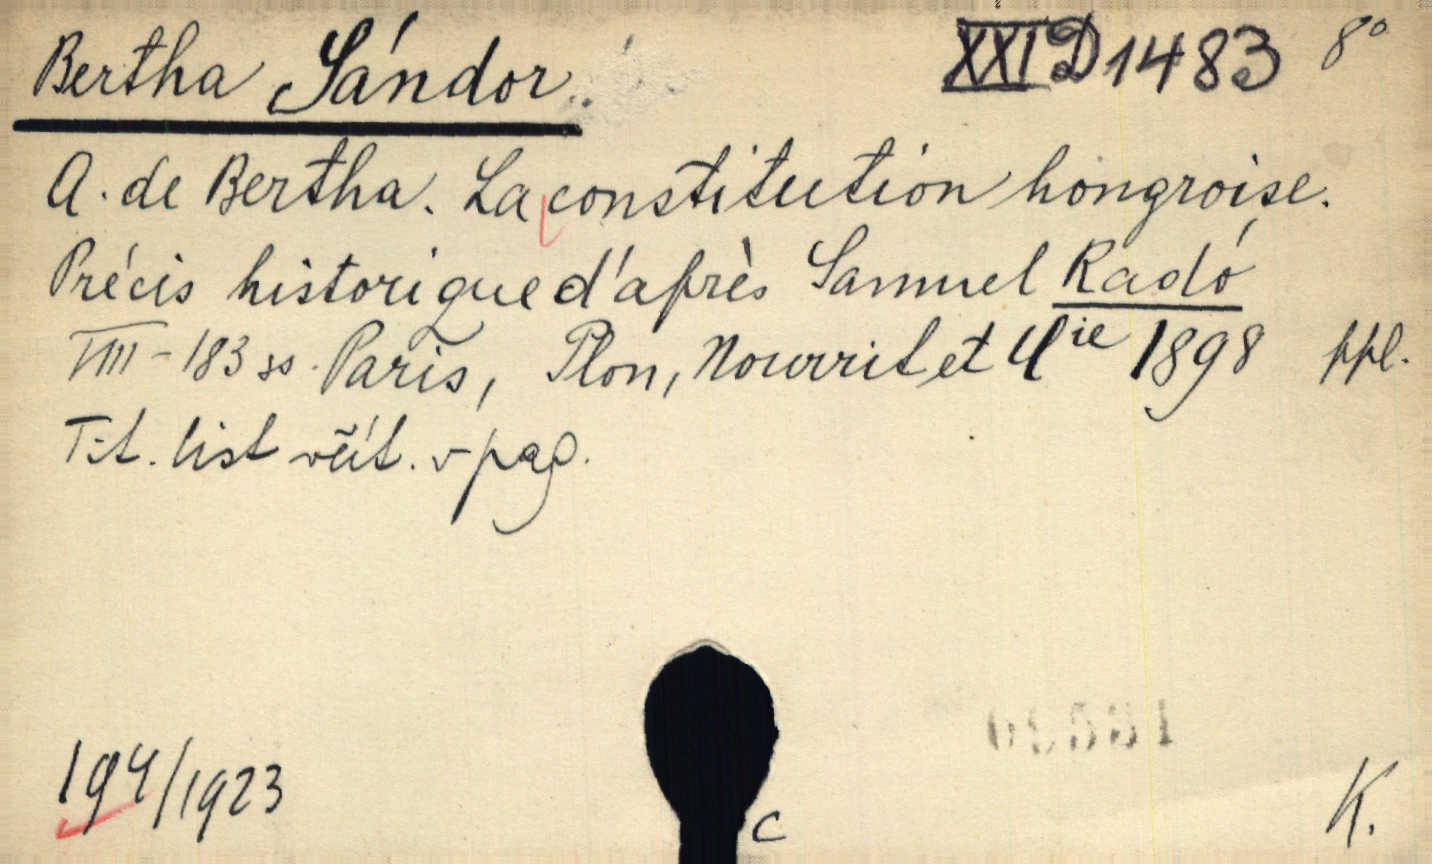 Bertha Sándor. XXI D 1483 8°
A. de Bertha. La constitution hongroise.
Précis historique d'après Samuel Radó
VIII - 183 ss. Paris, Plon, Nourrit et Cie 1898 ppl.
Tit. list včít. v pag.
194/1923
C
K.